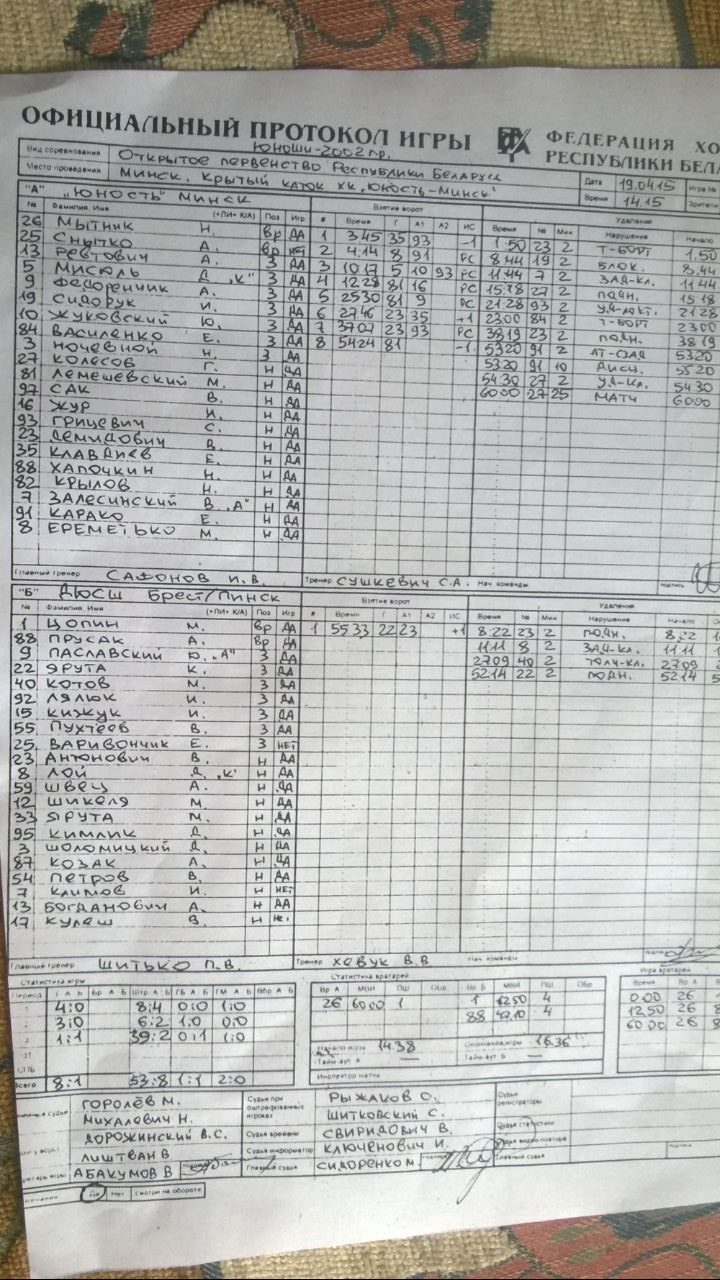 ОФИЦИАЛЬНЫЙ ПРОТОКОЛ ИГРЫ ФЕДЕРАЦИЯ ХО
РЕСПУБЛИКИ БЕЛА
Юноши-2002 г.р.
Вид соревнования Открытое первенство Республики Беларусь
Место проведения Минск, Крытый каток ХК „Юность-Минск"
Дата 19.04.15 Игра №
Время 14.15 Зрители
"А" „Юность" Минск Взятие ворот Удаления
№ Фамилия Имя (+ЛИ+ К/А) Поз Игр # Время Г А1 А2 ИС Время № Мин Нарушение Начало
26 Мытник Н. Вр ДА 1 3.45 35 93 -1 1.50 23 2 Т-БОРТ 1.50
25 Снытко А. Вр НЕТ 2 4.14 8 91 8.44 19 2 БЛОК. 8.44
13 Ревтович А. З ДА 3 10.17 5 10 93 РС 11.44 7 2 ЗАД-КЛ. 11.44
5 Мисюль Д. „К" З ДА 4 12.28 81 16 РС 15.18 27 2 ПОДН. 15.18
9 Федоренчик А. З ДА 5 25.30 81 9 РС 21.28 93 2 21.28
19 Сидорук И. З ДА 6 27.46 23 35 +1 23.00 84 2 Т-БОРТ 23.00
10 Жуковский Ю. З ДА 7 37.07 23 93 РС 38.19 23 2 ПОДН. 38.19
84 Василенко Е. З ДА 8 54.24 81 -1 53.20 91 2 53.20
3 Ночевной Н. З ДА 53.20 91 10 ДИСЦ. 55.20
27 Колесов Г. Н ДА 54.30 27 2 УД-КЛ. 54.30
81 Лемешевский М. Н ДА 60.00 27 25 МАТЧ 60.00
97 Сак В. Н ДА
16 Жур И. Н ДА
93 Грицевич С. Н ДА
23 Демидович В. Н ДА
35 Клавдиев Е. Н ДА
88 Хапочкин Н. Н ДА
82 Крылов Н. Н ДА
7 Залесинский В. „А" Н ДА
91 Карако Е. Н ДА
8 Ереметько М. Н ДА
Главный тренер Сафонов И.В. Тренер Сушкевич С.А. Нач команды подпись
"Б" ДЮСШ Брест/Пинск Взятие ворот Удаления
№ Фамилия Имя (+ЛИ+ К/А) Поз Игр # Время Г А1 А2 ИС Время № Мин Нарушение Начало
1 Цопин М. Вр ДА 1 55.33 22 23 +1 8.22 23 2 ПОДН. 8.22
88 Прусак А. Вр ДА 11.11 8 2 ЗАД-КЛ. 11.11
9 Паславский Ю. „А" З ДА 27.09 40 2 ТОЛЧ-КЛ. 27.09
22 Ярута К. З ДА 52.14 22 2 ПОДН. 52.14
40 Котов М. З ДА
92 Лялюк И. З ДА
15 Кижук И. З ДА
55 Пухтеев В. З ДА
25 Варивончик Е. З НЕТ
23 Антонович В. Н ДА
8 Лой Д. „К" Н ДА
59 Швец А. Н ДА
12 Шикеля М. Н ДА
33 Ярута М. Н ДА
95 Кимлик Д. Н ДА
3 Шоломицкий Д. Н ДА
87 Козак Л. Н ДА
54 Петров В. Н ДА
7 Климов И. Н НЕТ
13 Богданович А. Н ДА
17 Кулеш В. Н НЕТ
Главный тренер Шитько П.В. Тренер Хевук В.В Нач команды
Статистика игры Статистика вратарей Игра вратарей
Период Г А Б Бр А Б Штр А Б ГБ А Б ГМ А Б Вбр А Б Вр А МИН ПШ Обр Вр Б МИН ПШ Обр Время Вр А
4:0 8:4 0:0 1:0 26 60.00 1 1 12.50 4 0.00 26
3:0 6:2 1:0 0:0 88 47.10 4 12.50 26
1:1 39:2 0:1 1:0 60.00 26
Начало игры 14.38 Окончание игры 16.36
ОТ Тайм аут А — Тайм аут Б —
Всего 8:1 53:8 1:1 2:0 Инспектор матча
Горолёв М. Судьи при оштрафованных игроках Рыжаков О. Судьи регистраторы
Михалевич Н. Шитковский С.
Дорожинский В.С. Судья времени Свиридович В. Судья статистики
Лиштван В Судья информатор Ключенович И. Судья видеоповтора
Абакумов В Главный судья Сидоренко М. Главный судья
Да Нет Смотри на обороте